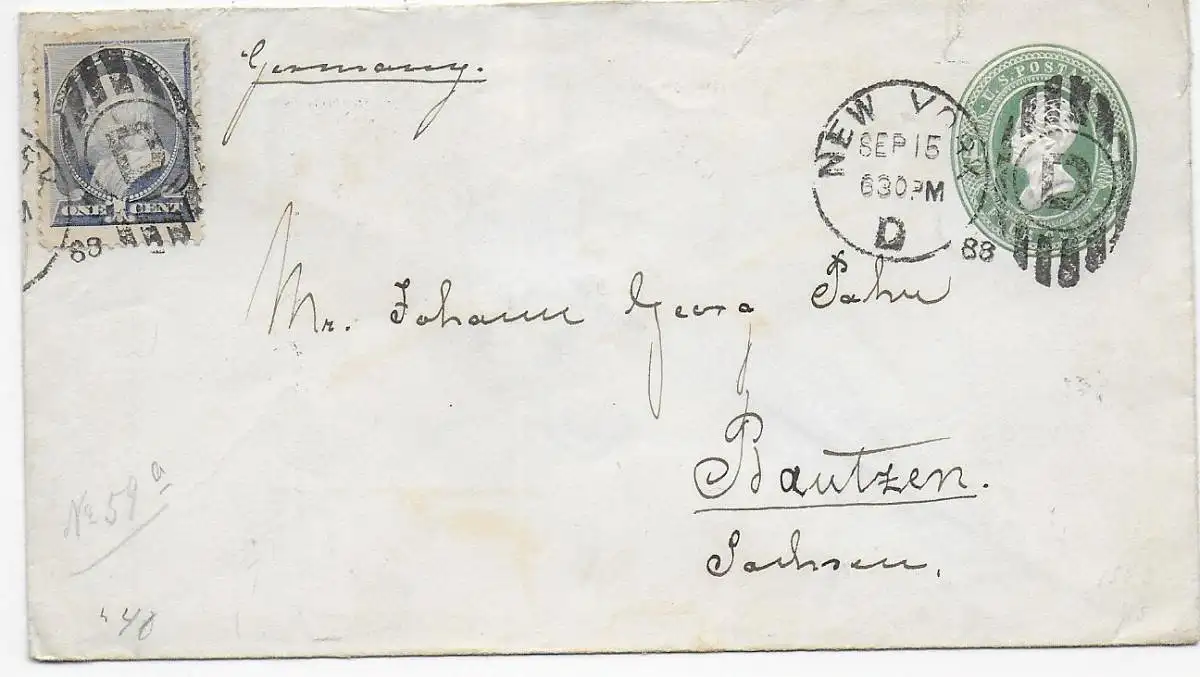 Germany.
ONE CENT
88
U.S. POST
NEW YORK
SEP 15
630PM
D
88
Mr. Johann Georg
Bautzen.
Sachsen.
No 59 a
40